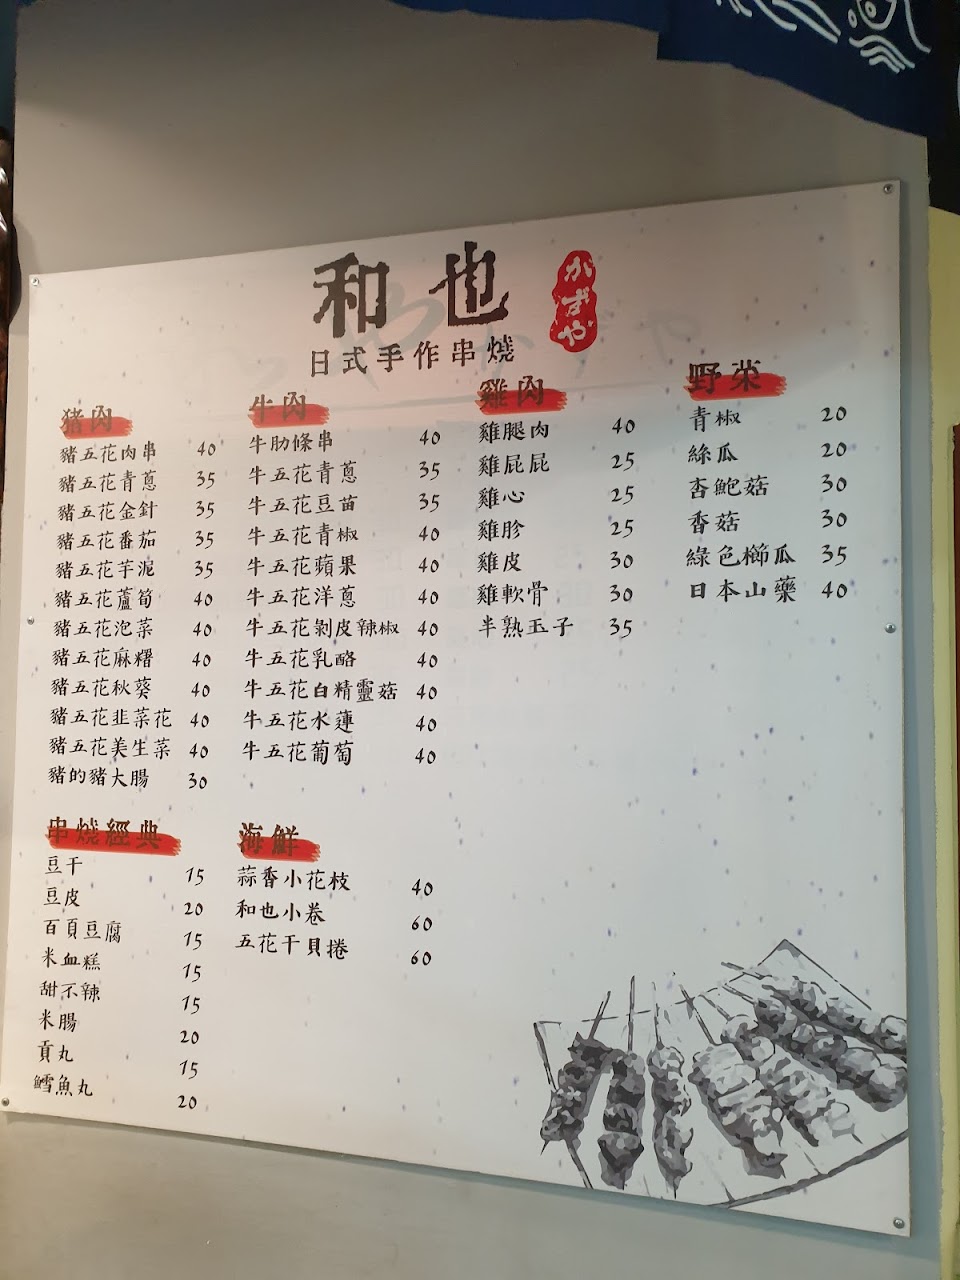 和也
かずや
日式手作串燒
猪肉
豬五花肉串 40
豬五花青蔥 35
豬五花金針 35
豬五花番茄 35
豬五花芋泥 35
豬五花蘆筍 40
豬五花泡菜 40
豬五花麻糬 40
豬五花秋葵 40
豬五花韭菜花 40
豬五花美生菜 40
豬的豬大腸 30
牛肉
牛肋條串 40
牛五花青蔥 35
牛五花豆苗 35
牛五花青椒 40
牛五花蘋果 40
牛五花洋蔥 40
牛五花剝皮辣椒 40
牛五花乳酪 40
牛五花白精靈菇 40
牛五花水蓮 40
牛五花葡萄 40
雞肉
雞腿肉 40
雞屁屁 25
雞心 25
雞胗 25
雞皮 30
雞軟骨 30
半熟玉子 35
野菜
青椒 20
絲瓜 20
杏鮑菇 30
香菇 30
綠色櫛瓜 35
日本山藥 40
串燒經典
豆干 15
豆皮 20
百頁豆腐 15
米血糕 15
甜不辣 15
米腸 20
貢丸 15
鱈魚丸 20
海鮮
蒜香小花枝 40
和也小卷 60
五花干貝捲 60